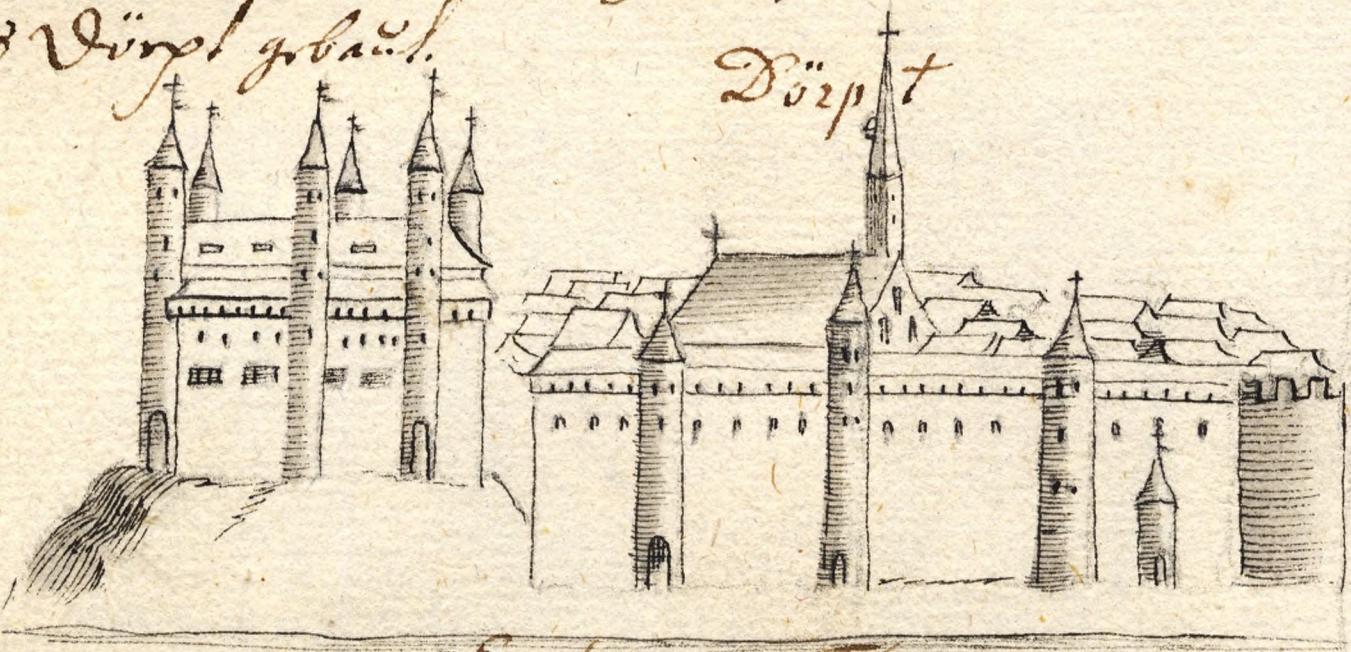 Dörpt gebaut.
Dörpt